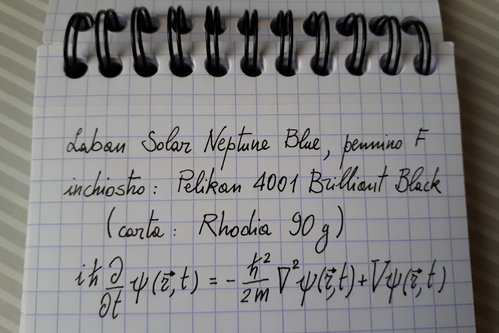 Laban Solar Neptune Blue, pennino F
inchiostro: Pelikan 4001 Brilliant Black
(carta: Rhodia 90g)
iħ ∂/∂t ψ(r⃗,t) = -ħ²/2m ∇²ψ(r⃗,t)+Vψ(r⃗,t)